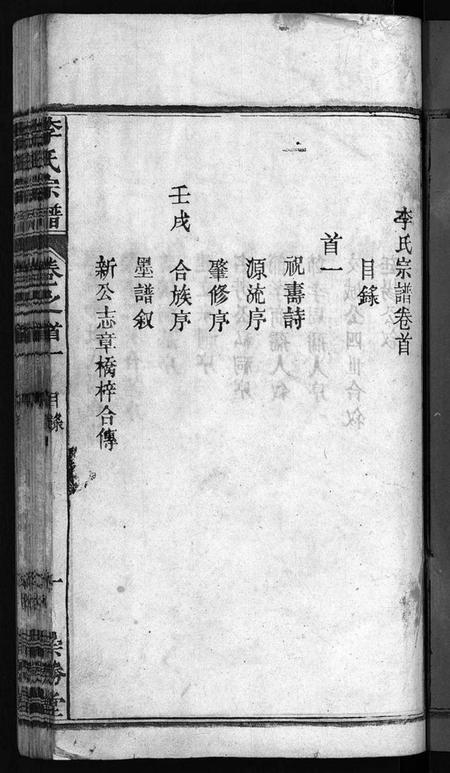 李氏宗譜卷首
目錄
首一
祝壽詩
源流序
肇修序
壬戌 合族序
墨譜叙
新公志章橋梓合傳
李氏宗譜 卷之首一 目錄 一